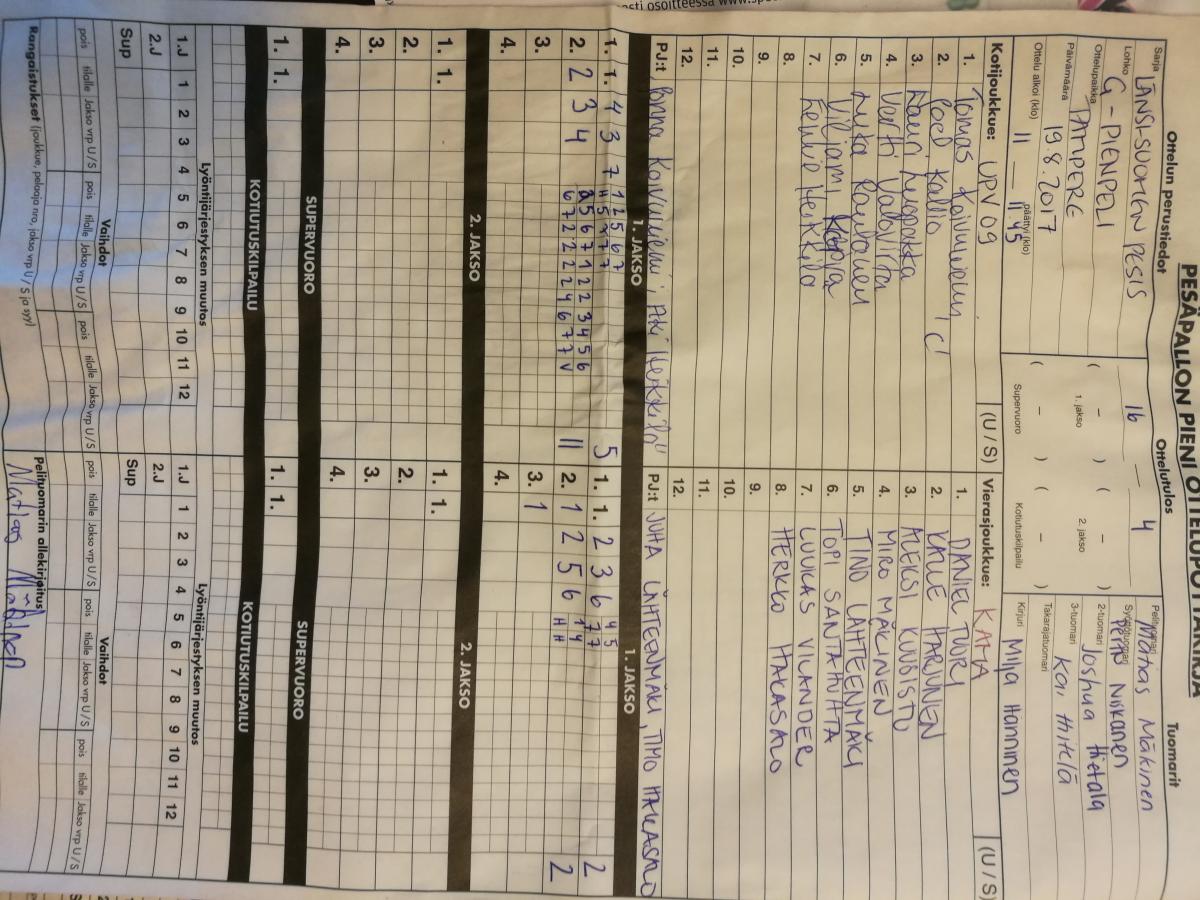 esti osoitteessa www.sp
PESÄPALLON PIENI OTTELUPÖYTÄKIRJA
Ottelun perustiedot
Ottelutulos
Tuomarit
Sarja LÄNSI-SUOMEN PESIS
Lohko G-PIENPELI
Ottelupaikka TAMPERE
Päivämäärä 19.8.2017
Ottelu alkoi (klo) 11 päättyi (klo) 11.45
16 – 4
( – ) ( – )
1. jakso 2. jakso
( – ) ( – )
Supervuoro Kotiutuskilpailu
Pelituomari Matias Mäkinen
Syöttötuomari Niskanen
2-tuomari Joshua Hietala
3-tuomari Kai Hiitelä
Takarajatuomari
Kirjuri Milja Hänninen
Kotijoukkue: UPV 09 (U / S)
1. Tomas Koivuniemi
2. Joel Kallio C
3. Lauri
4. Vertti
5. Luka Rautanen
6. Viljami
7. Heikkilä
8.
9.
10.
11.
12.
PJ:t Koivuniemi, Aki Heikkilä
Vierasjoukkue: KATA (U / S)
1. DANIEL TUURI
2. KALLE HARJUNEN
3. ALEKSI KUUSISTO
4. MIRO MÄKINEN
5. TINO LÄHTEENMÄKI
6. TOPI SANTAHUHTA
7. LUUKAS VILANDER
8. HERKKO HAKASALO
9.
10.
11.
12.
PJ:t JUHA LÄHTEENMÄKI, TIMO HAKASALO
1. JAKSO 1. JAKSO
1. 1. 4 3 7 5
2. 2 3 4 11
3.
4.
1. 1. 2 3 6 2
2. 1 2 5 6 2
3. 1
4.
2. JAKSO 2. JAKSO
1. 1. 1. 1.
2. 2.
3. 3.
4. 4.
SUPERVUORO SUPERVUORO
1. 1. 1. 1.
KOTIUTUSKILPAILU KOTIUTUSKILPAILU
Lyöntijärjestyksen muutos Lyöntijärjestyksen muutos
1.J 1 2 3 4 5 6 7 8 9 10 11 12 1.J 1 2 3 4 5 6 7 8 9 10 11 12
2.J 2.J
Sup Sup
Vaihdot Vaihdot
pois tilalle Jakso vrp U / S pois tilalle Jakso vrp U / S pois tilalle Jakso vrp U / S pois tilalle Jakso vrp U / S pois tilalle Jakso vrp U / S pois tilalle Jakso vrp U / S
Rangaistukset (joukkue, pelaaja nro, jakso vrp U / S ja syy)
Pelituomarin allekirjoitus
Matias Mäkinen